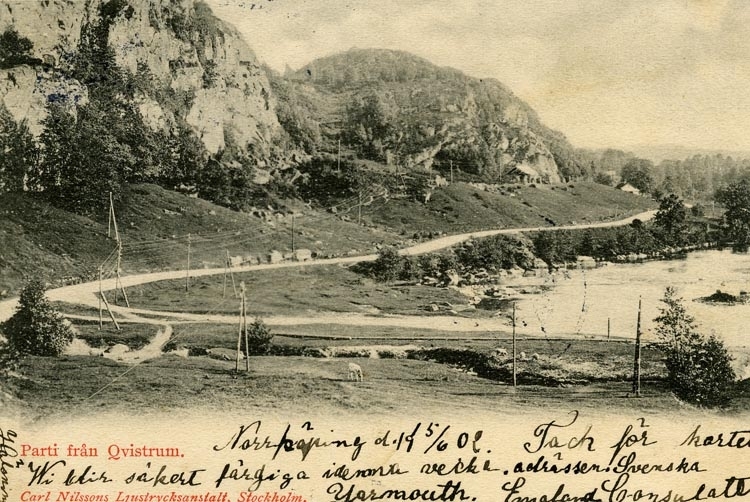 Parti från Qvistrum.
Norrköping d. 15/6 02. Tack för kortet
Wi blir säkert färdiga i denna vecka. adressen Svenska
Carl Nilssons Ljustrycksanstalt, Stockholm.
Yarmouth. England Consulatt